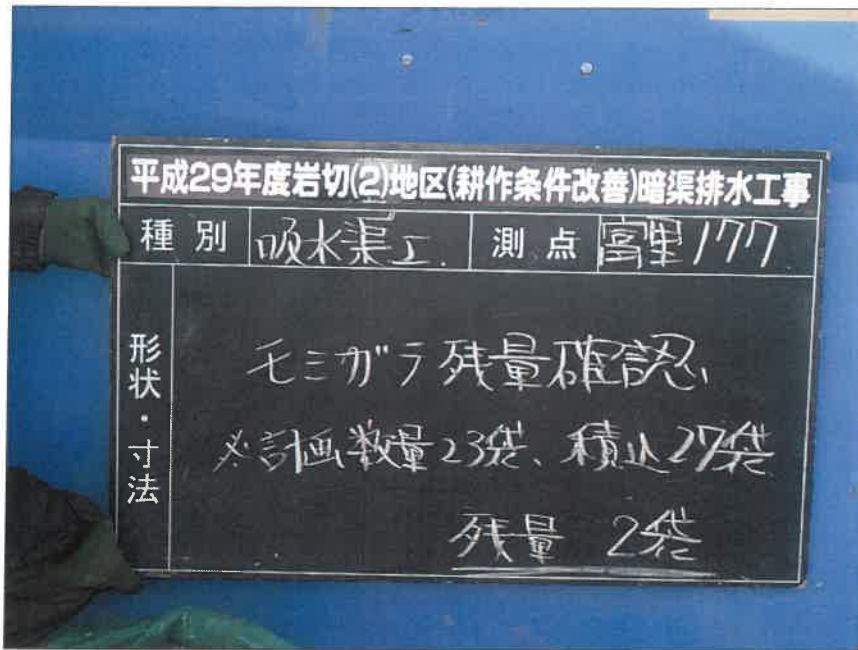 平成29年度岩切(2)地区(耕作条件改善)暗渠排水工事
種別 吸水渠工. 測点 富里177
形状・寸法
モミガラ残量確認
※計画数量23袋、積込27袋
残量 2袋